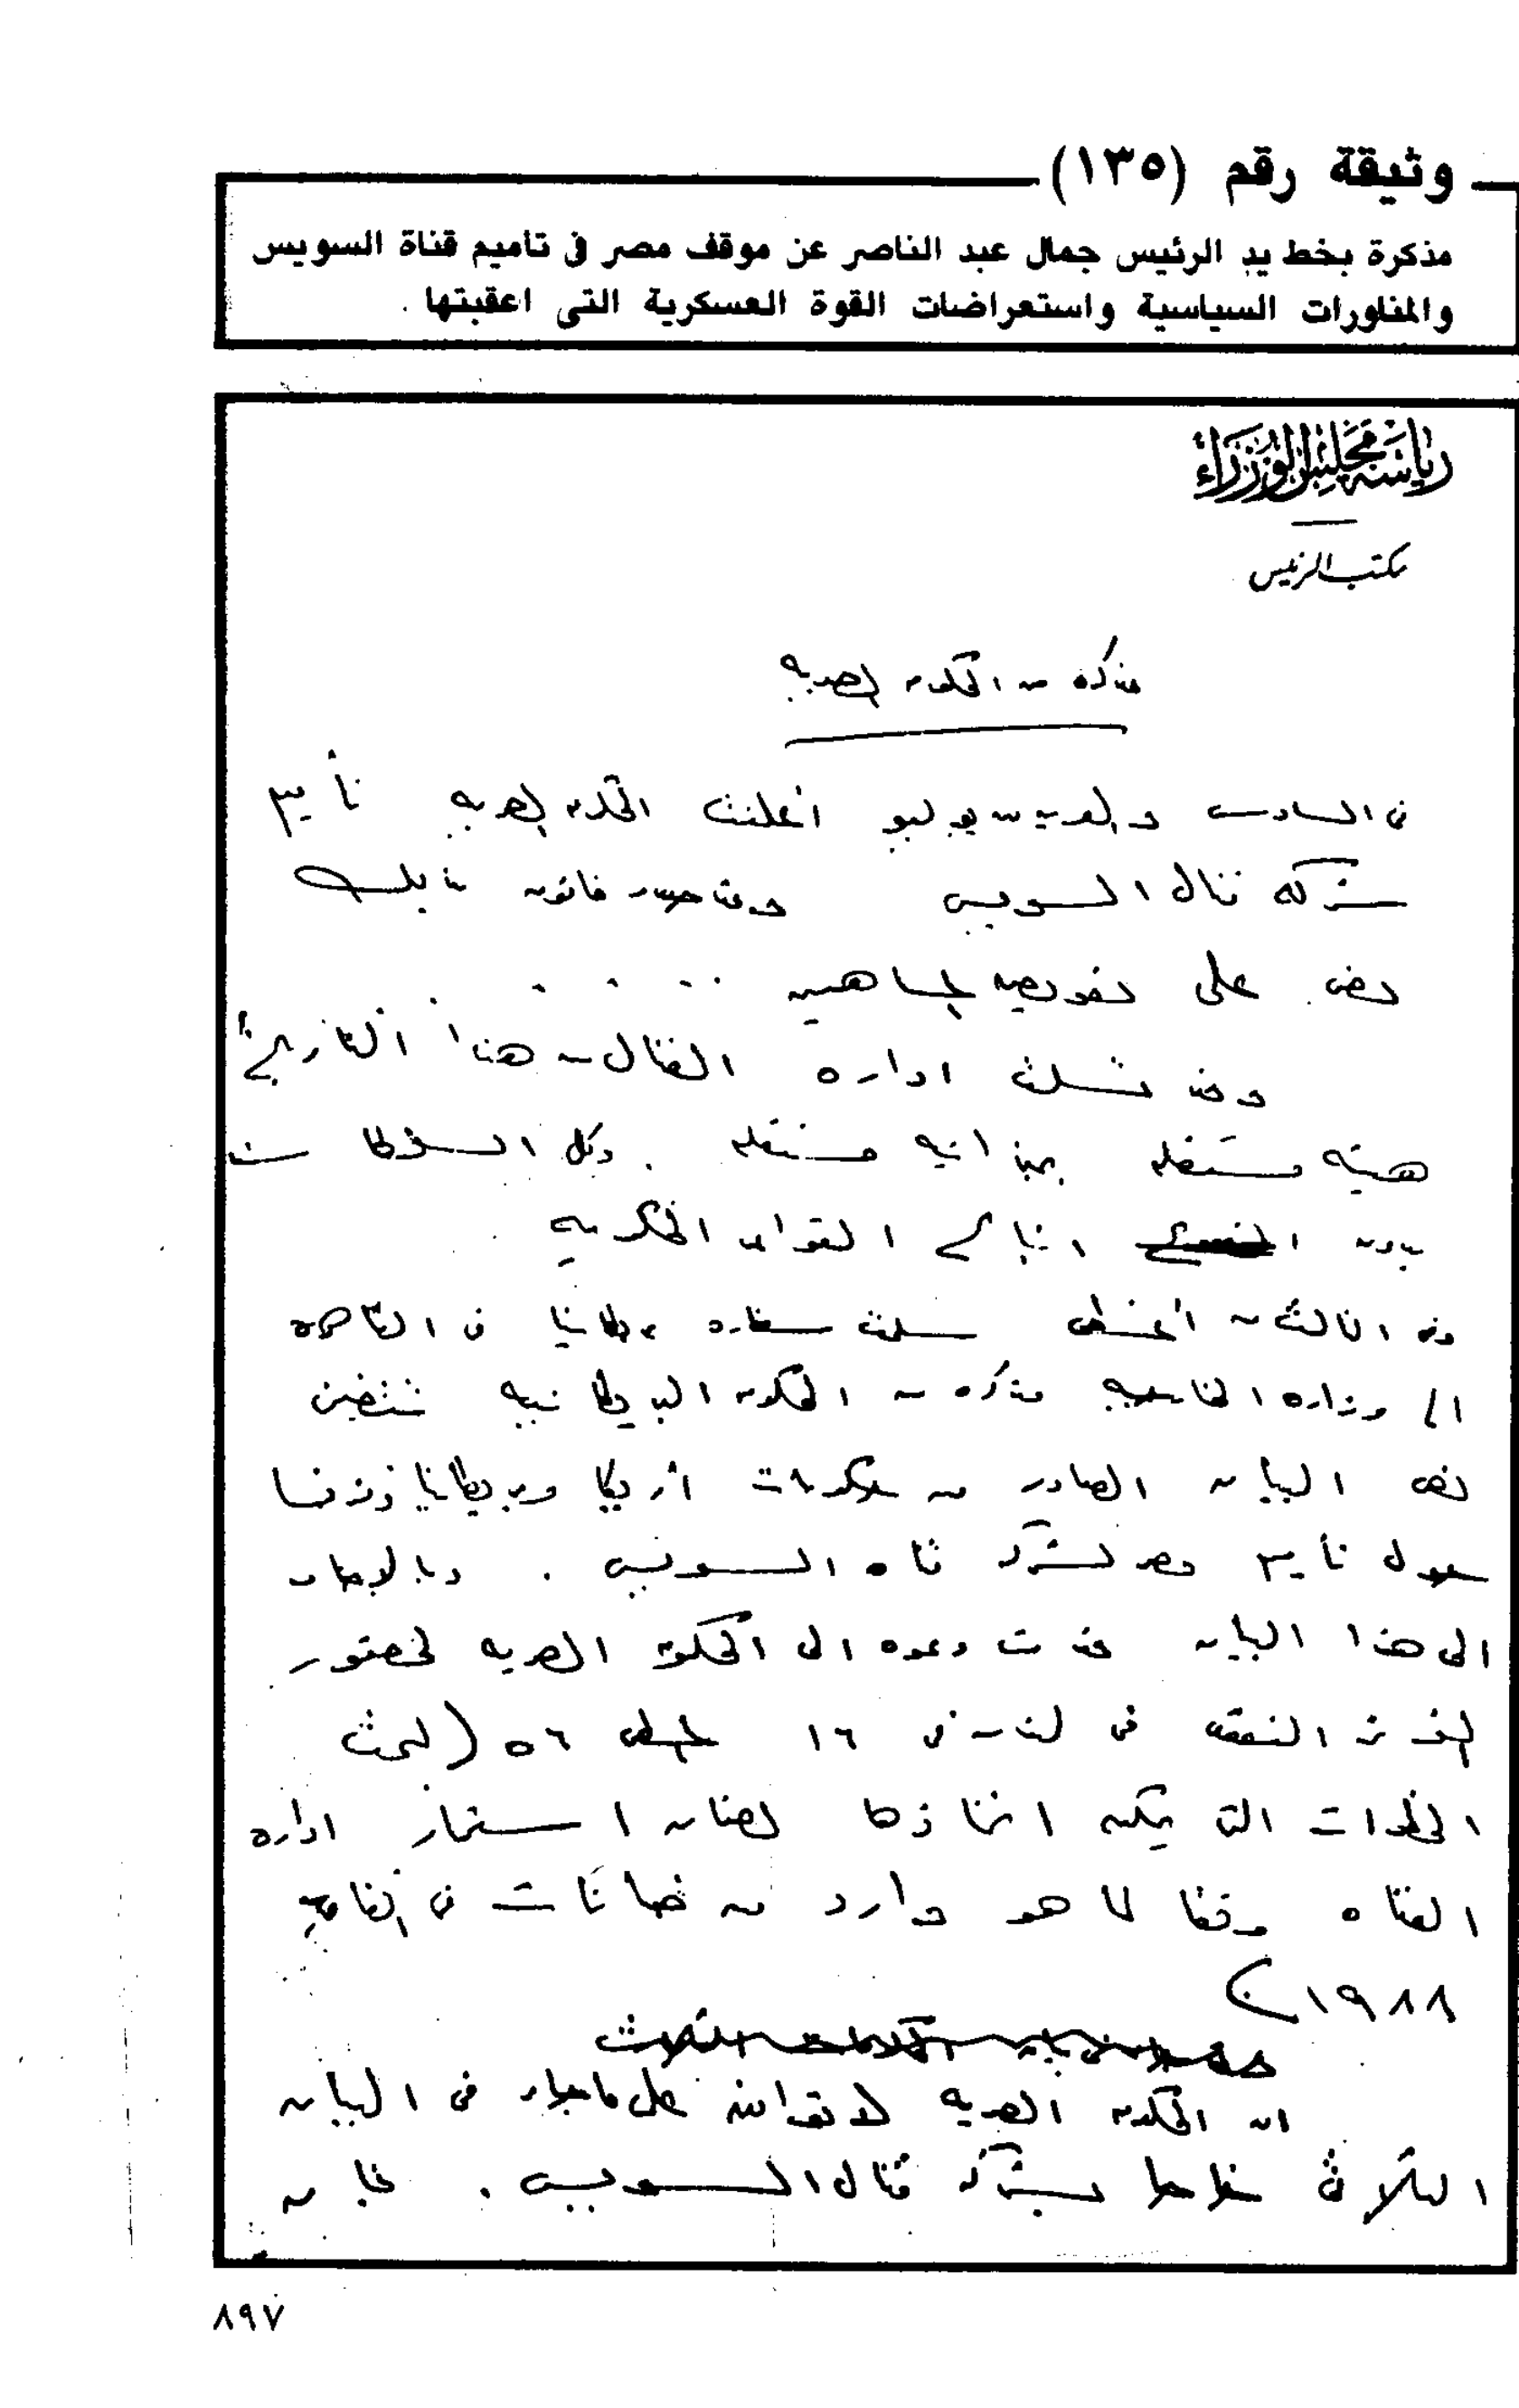 وثيقة رقم (١٣٥)
مذكرة بخط يد الرئيس جمال عبد الناصر عن موقف مصر فى تاميم قناة السويس
والمناورات السياسية واستعراضات القوة العسكرية التى اعقبتها .
رياسة مجلس الوزراء
مكتب الرئيس
مذكره من الحكومه المصريه
فى السادس والعشرين من يوليو اعلنت الحكومه المصريه تأميم
شركه قنال السويس وقد صدر قانون بذلك
ونص على تعويض المساهمين . . . . .
وقد تسلمت اداره القنال من هذا التاريخ
هيئه مستقله بميزانيه مستقله . ولكل السلطات
بدون اتباع القواعد الحكوميه
وفى الثالث من اغسطس سلمت سفاره بريطانيا فى القاهره
الى وزاره الخارجيه مذكره من الحكومه البريطانيه تتضمن
نص البيان الصادر من حكومات امريكا وبريطانيا وفرنسا
حول تأميم مصر لشركه قناه السويس . وبالاضافه
الى هذا البيان قدمت دعوه الى الحكومه المصريه لحضور
المؤتمر المنعقد فى لندن فى ١٦ اغسطس ٥٦ (لبحث
الخطوات التى يمكن اتخاذها لضمان استمرار اداره
القناه وفقا لما هو وارد من ضمانات فى اتفاقيه
١٩٨٨)
ان الحكومه المصريه لا توافق على ما جاء فى البيان
الثلاثى خاصا بشركه قنال السويس .
٨٩٧